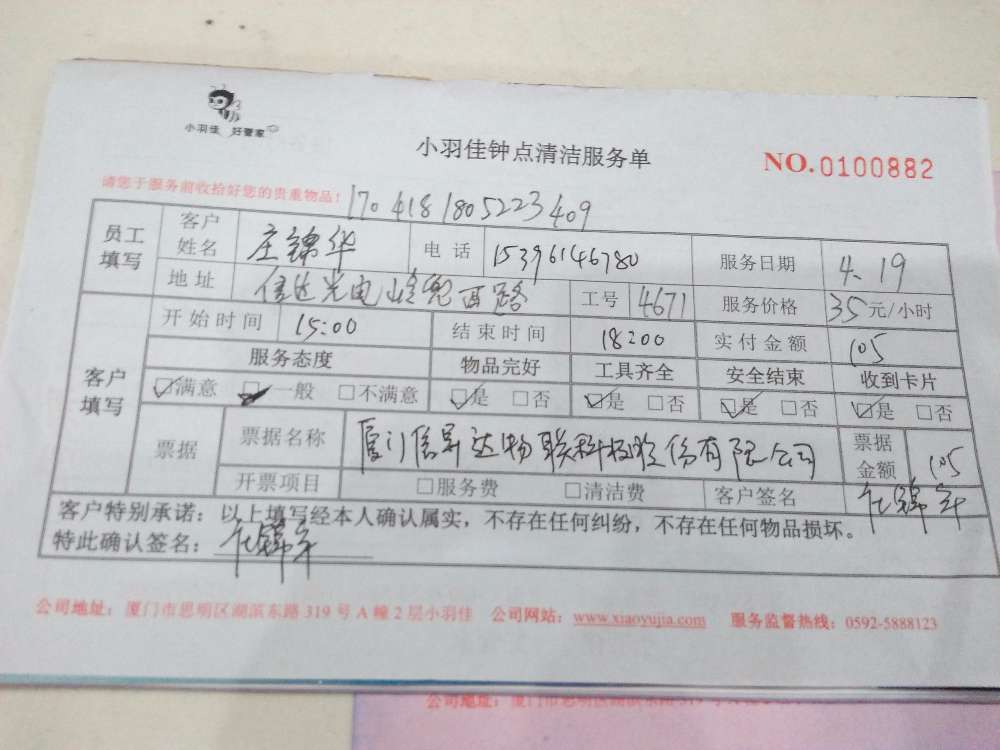 小羽佳 好管家
小羽佳钟点清洁服务单
NO.0100882
请您于服务前收拾好您的贵重物品! 170418180523409
员工填写 客户姓名 庄锦华 电话 15396146780 服务日期 4.19
地址 信达光电 岭兜西路 工号 4671 服务价格 35元/小时
客户填写 开始时间 15:00 结束时间 18:00 实付金额 105
服务态度 物品完好 工具齐全 安全结束 收到卡片
☑满意 ☑一般 □不满意 ☑是 □否 ☑是 □否 ☑是 □否 ☑是 □否
票据 票据名称 厦门信昇达物联科技股份有限公司 票据金额 105
开票项目 □服务费 □清洁费 客户签名 庄锦华
客户特别承诺:以上填写经本人确认属实,不存在任何纠纷,不存在任何物品损坏。
特此确认签名: 庄锦华
公司地址:厦门市思明区湖滨东路 319 号 A 幢 2 层小羽佳 公司网站:www.xiaoyujia.com 服务监督热线:0592-5888123
公司地址:厦门市思明区湖滨东路 319 号